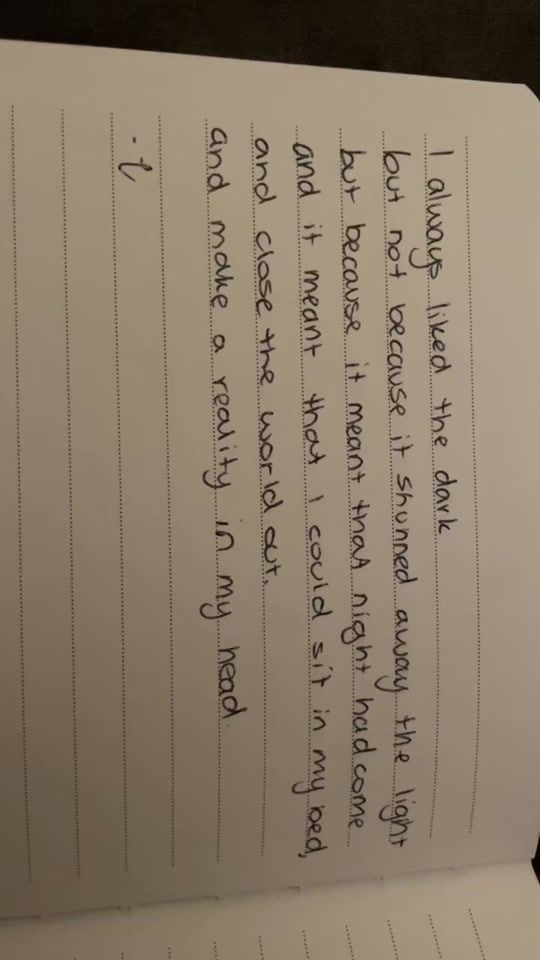 I always liked the dark
but not because it shunned away the light
but because it meant that night had come
and it meant that I could sit in my bed,
and close the world out.
and make a reality in my head